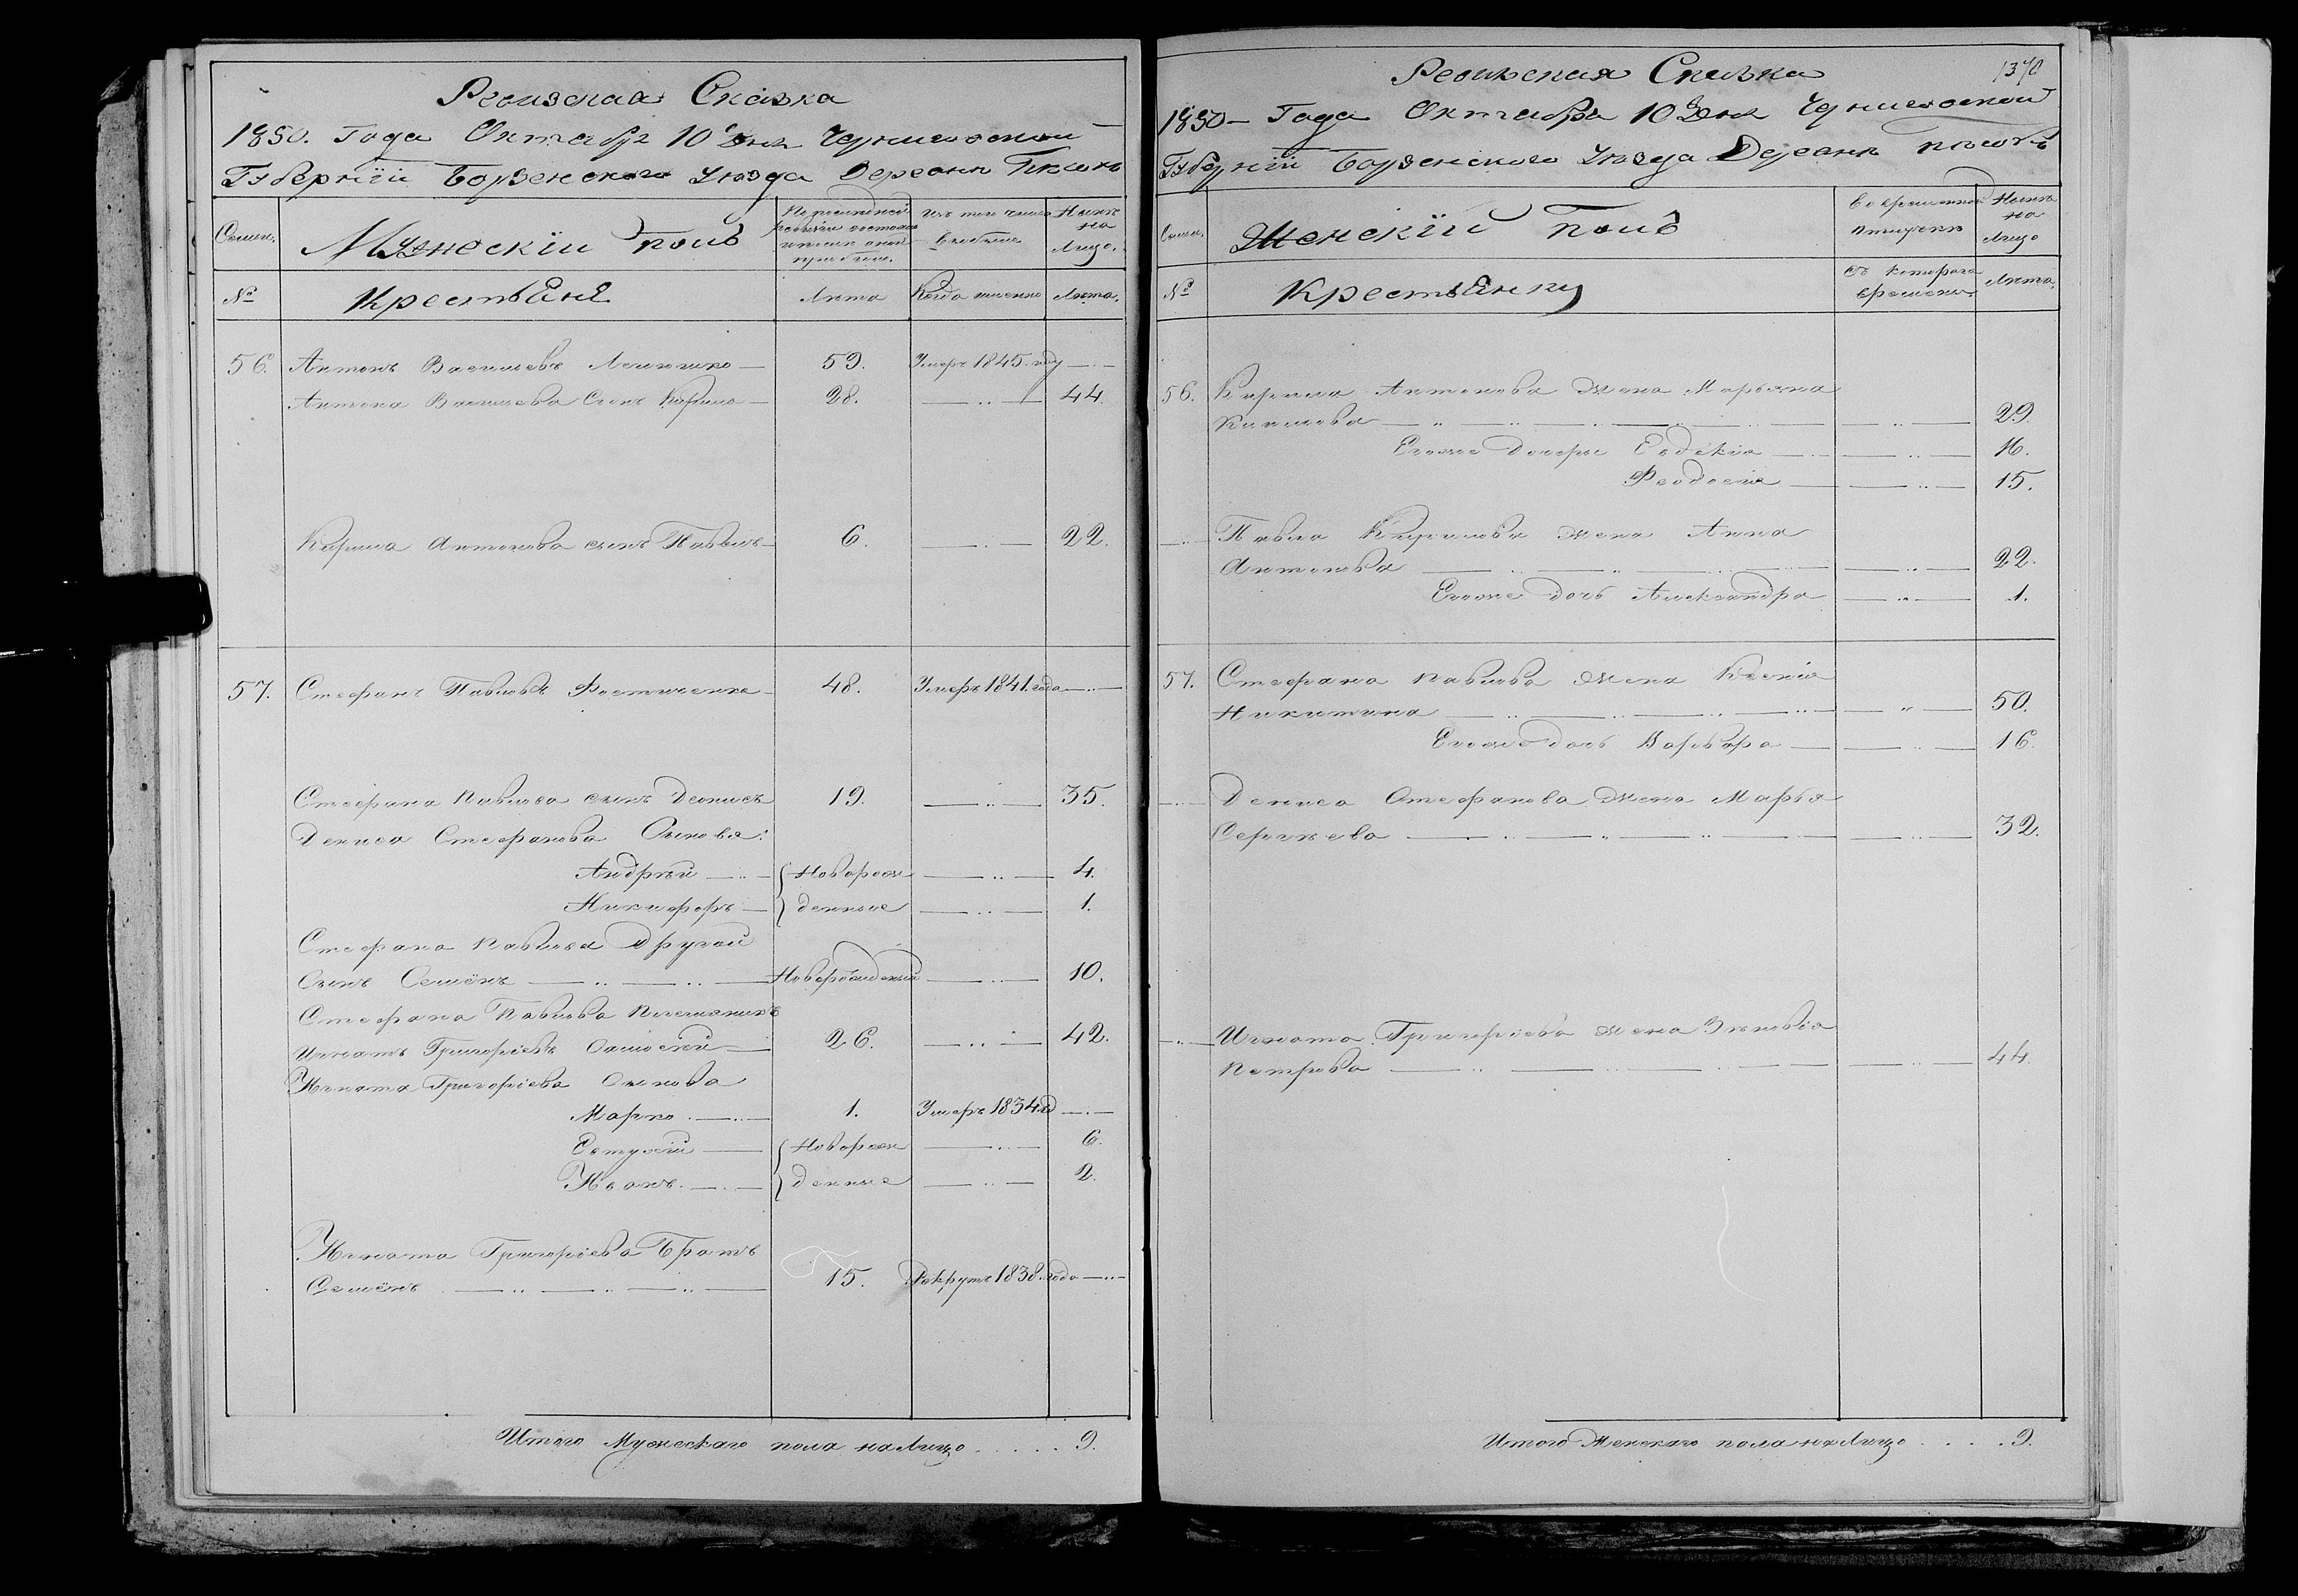 Ревизская Сказка
1850. Года Октября 10 Дня Черниговской
Губернїи Борзенского Уѣзда Деревни
Семьи.
Мужескїй полъ
По последней ревизіи состояло и после оной прибыло.
Изъ того числа выбыло
Нынѣ на лицо.
№
Крестьяне
Лѣта
Когда именно
Лѣта.
56. Антонъ Васильевъ 59. Умеръ 1845. году
Антона Васильева Сынъ Кирило 28. 44
Кирила Антонова сынъ Павелъ 6. 22.
57. Стефанъ Павловъ 48. Умеръ 1841. года
Стефана Павлова сынъ Денисъ 19. 35.
Дениса Стефанова Сыновя:
Андрѣй Новорож 4.
Никифоръ денные 1.
Стефана Павлова Другой
Сынъ Семёнъ Новорожденый 10.
Стефана Павлова племяникъ
Игнатъ Григорїевъ 26. 42.
Игната Григорїева Сынова
Марко 1. Умеръ 1834.
Новорож 6.
Иванъ денные 2.
Игната Григорїева Братъ
Семёнъ 15. Рекрутъ 1838. года
Итого Мужескаго пола на Лицо . . . . . 9.
Ревизская Сказка
1370
1850 Года Октября 10 Дня Черниговской
Губернїи Борзенского Уѣзда Деревни
Семьи.
Женскїй Полъ
Во временной отлучкѣ
Нынѣ на Лицо
№
Крестьянки
съ котораго времени
Лѣта.
56. Кирила Антонова жена Марьяна
29.
Егоже Дочери Евдокїя 16.
Феодосия 15.
Павла Кирилова жена Анна
Антонова 22.
Егоже дочь Александра 1.
57. Стефана Павлова жена Ксенія
Никитина 50.
Егоже дочь Варвара 16.
Дениса Стефанова жена Марья
Сергѣева 32.
Игната Григорїева жена Зѣновїя
Петрова 44.
Итого Женскаго пола на Лицо . . . . 9.